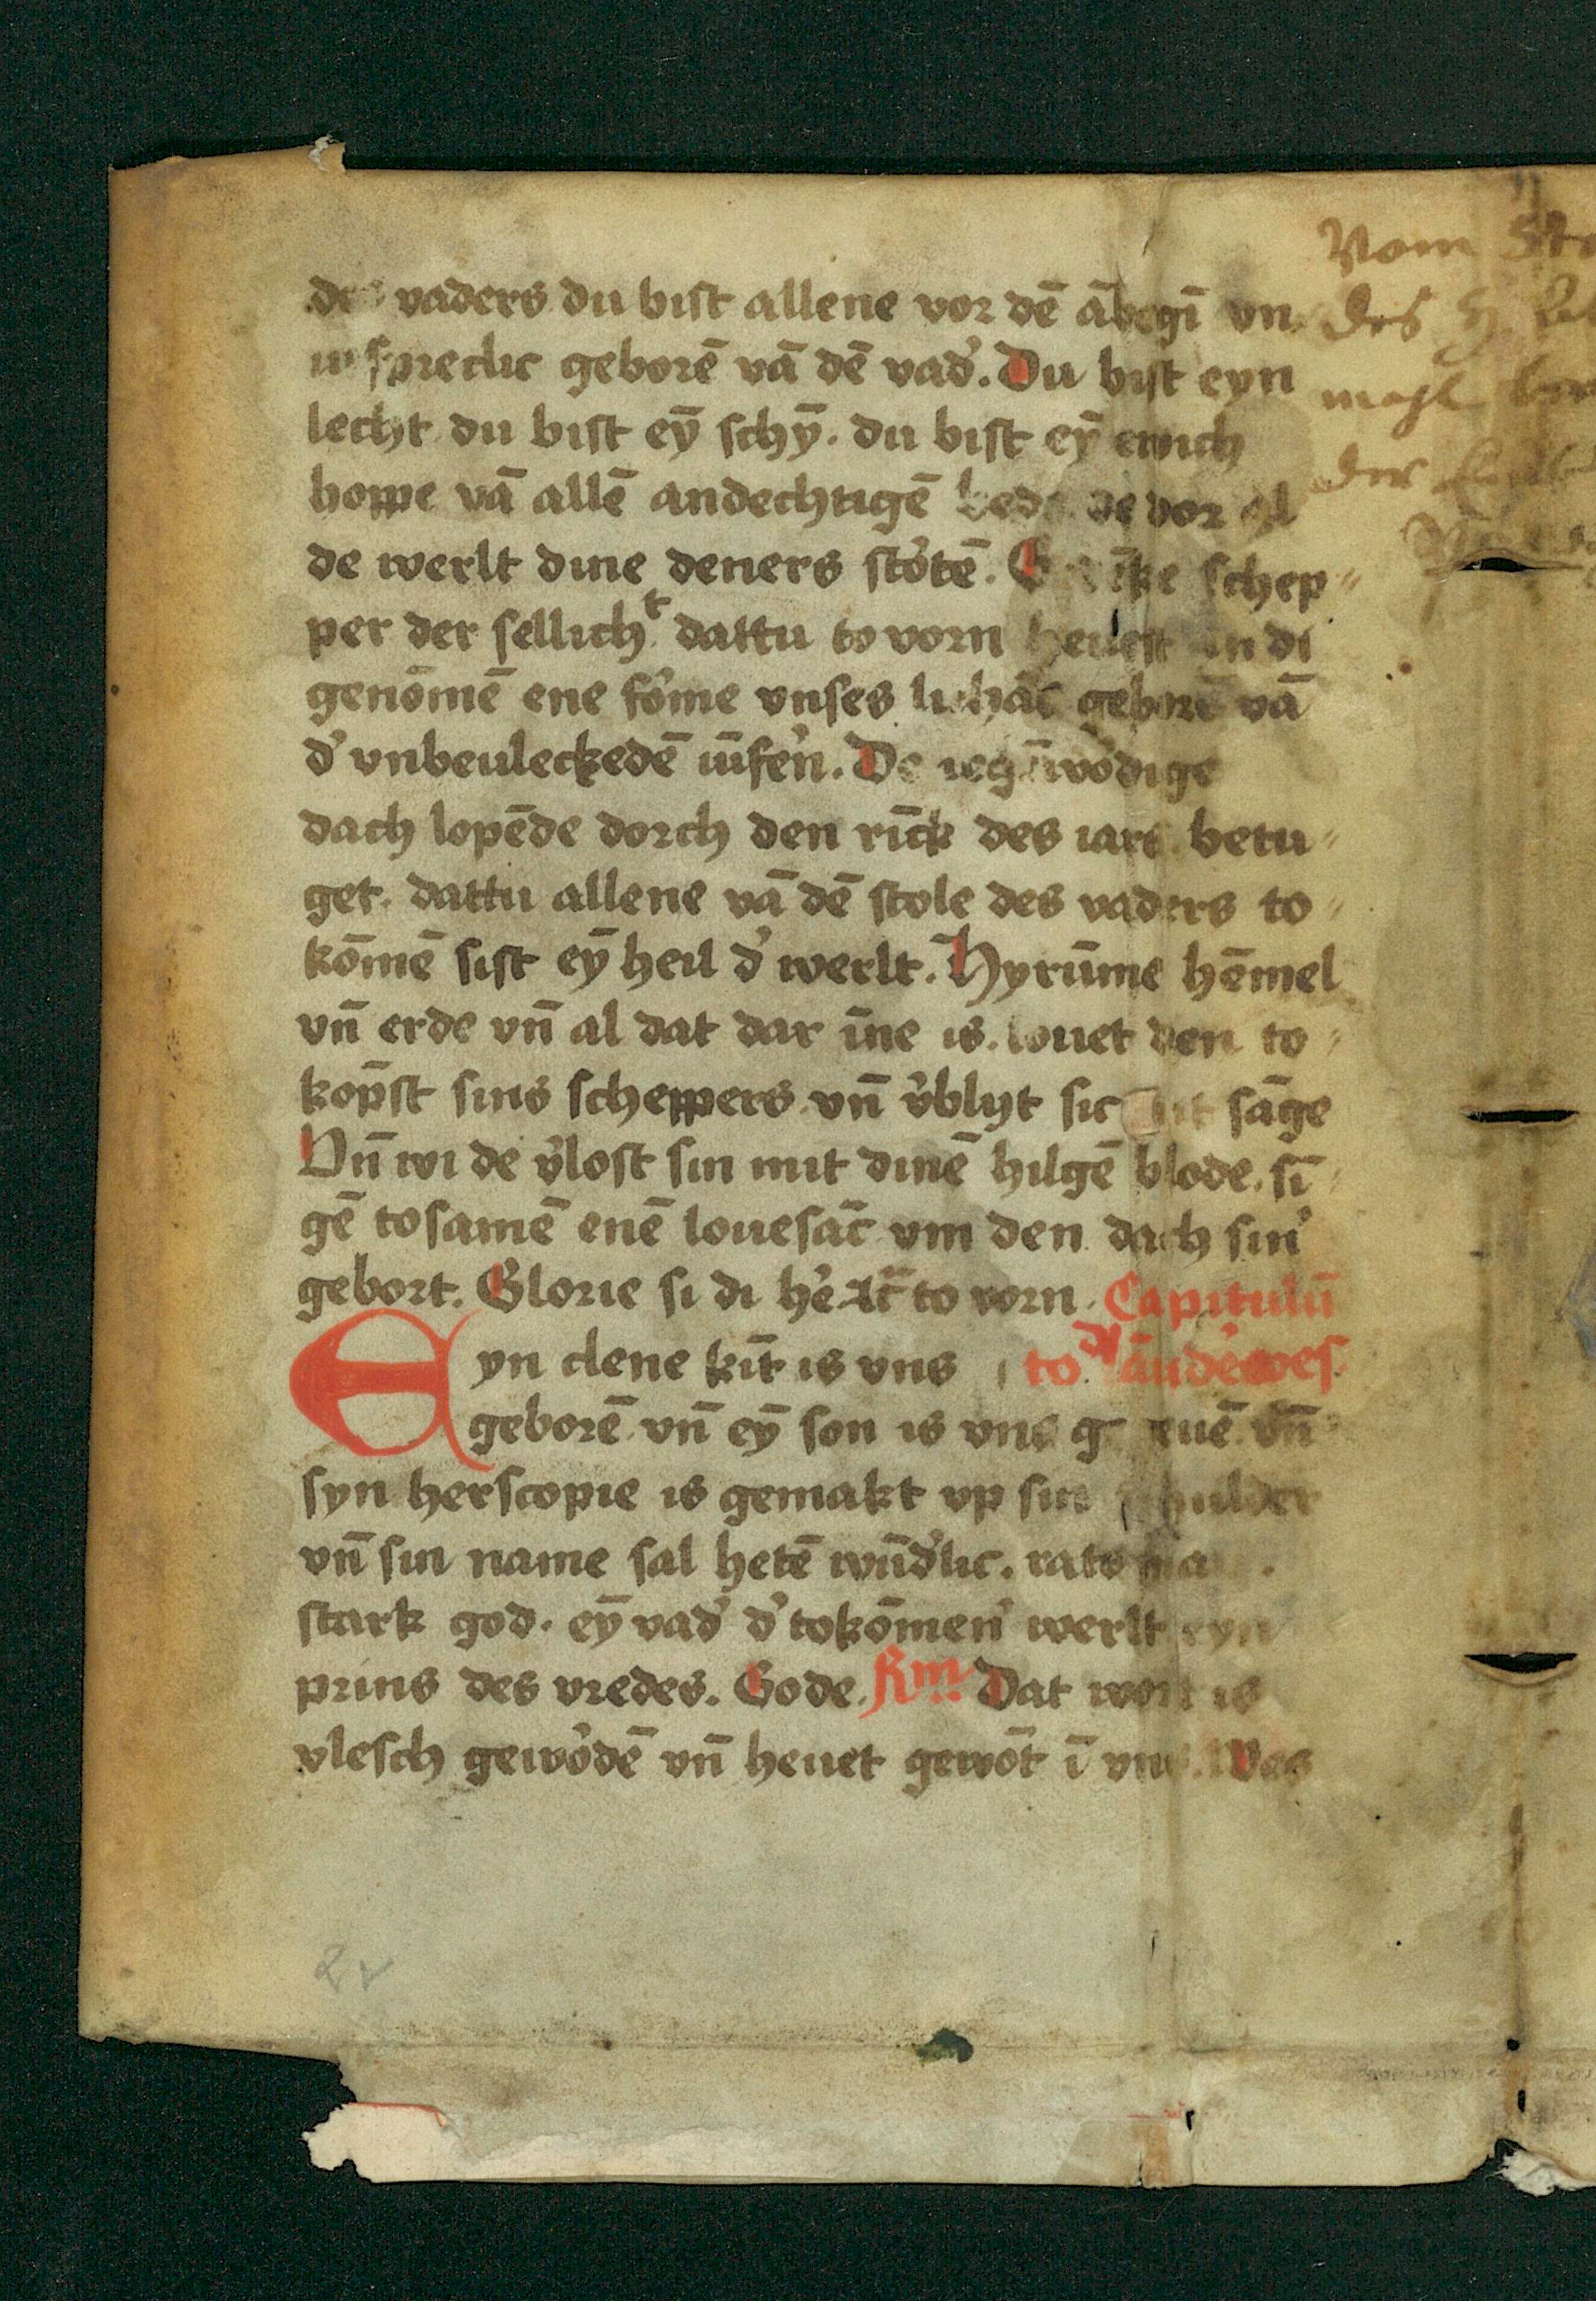 des vaders du bist allene vor dē ābegī vn
insprechlic geborē vā dē vad̾. Du bist eyn
lecht du bist eȳ schȳ. du bist eȳ ewich
hoppe vā allē andechtigē bede de vor al
de werlt dine deners sto̾tē. schep⸗
per der sellich^t dattu to vorn heuest an di
genōmē ene fo̾me vnses lichāc geborē vā
d̾ vnbeuleckedē iūfe̾n. De iegēwo̾dige
dach lopēde dorch den rīck des iars betu⸗
get. dattu allene vā dē stole des vaders to⸗
kōmē sist eȳ heil d̾ werlt. Hyrūme hēmel
vn̄ erde vn̄ al dat dar īne is. louet den to⸗
kop̄st sins scheppers vn̄ v̾blyt sic mit sāge
Vn̄ wi de v̾lost sin mit dinē hilgē blode. sī⸗
gē tosamē enē louesāc vm den dach sin̾
gebort. Glorie si di he̾ ⁊c̄ to vorn. Capitulū
Eyn clene kīt is vns to d̾ ānde̾ves.
geborē vn̄ eȳ son is vns geuē vn̄
syn herscopie is gemakt vp sin schulder
vn̄ sin name sal hetē wūd̾lic. rats
stark god. eȳ vad̾ d̾ tokōmen̾ werlt eyn
prins des vredes. Gode. Rm̄ Dat wort is
vlesch gewo̾dē vn̄ heuet gewōt ī vns. Wes
Vom
des H.
mahl
der
22